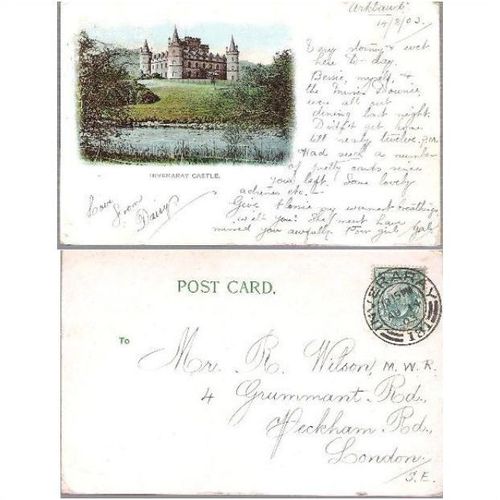 14/8/03.
Very stormy & wet
here to-day.
Bessie, myself, &
the Misses Downie
were all out
dining last night.
Didn't get home
till nearly twelve.
Had such a number
of pretty cards since
you left. Some lovely
actresses etc.
Give Flossie my warmest
won't you? She must have
missed you awfully. Poor girl
Love from
Daisy
INVERARAY CASTLE.
POST CARD.
INVERARAY
151
To
Mr. R. Wilson, M.W.R.
4 Grummant Rd,
Peckham Rd,
London
S.E.